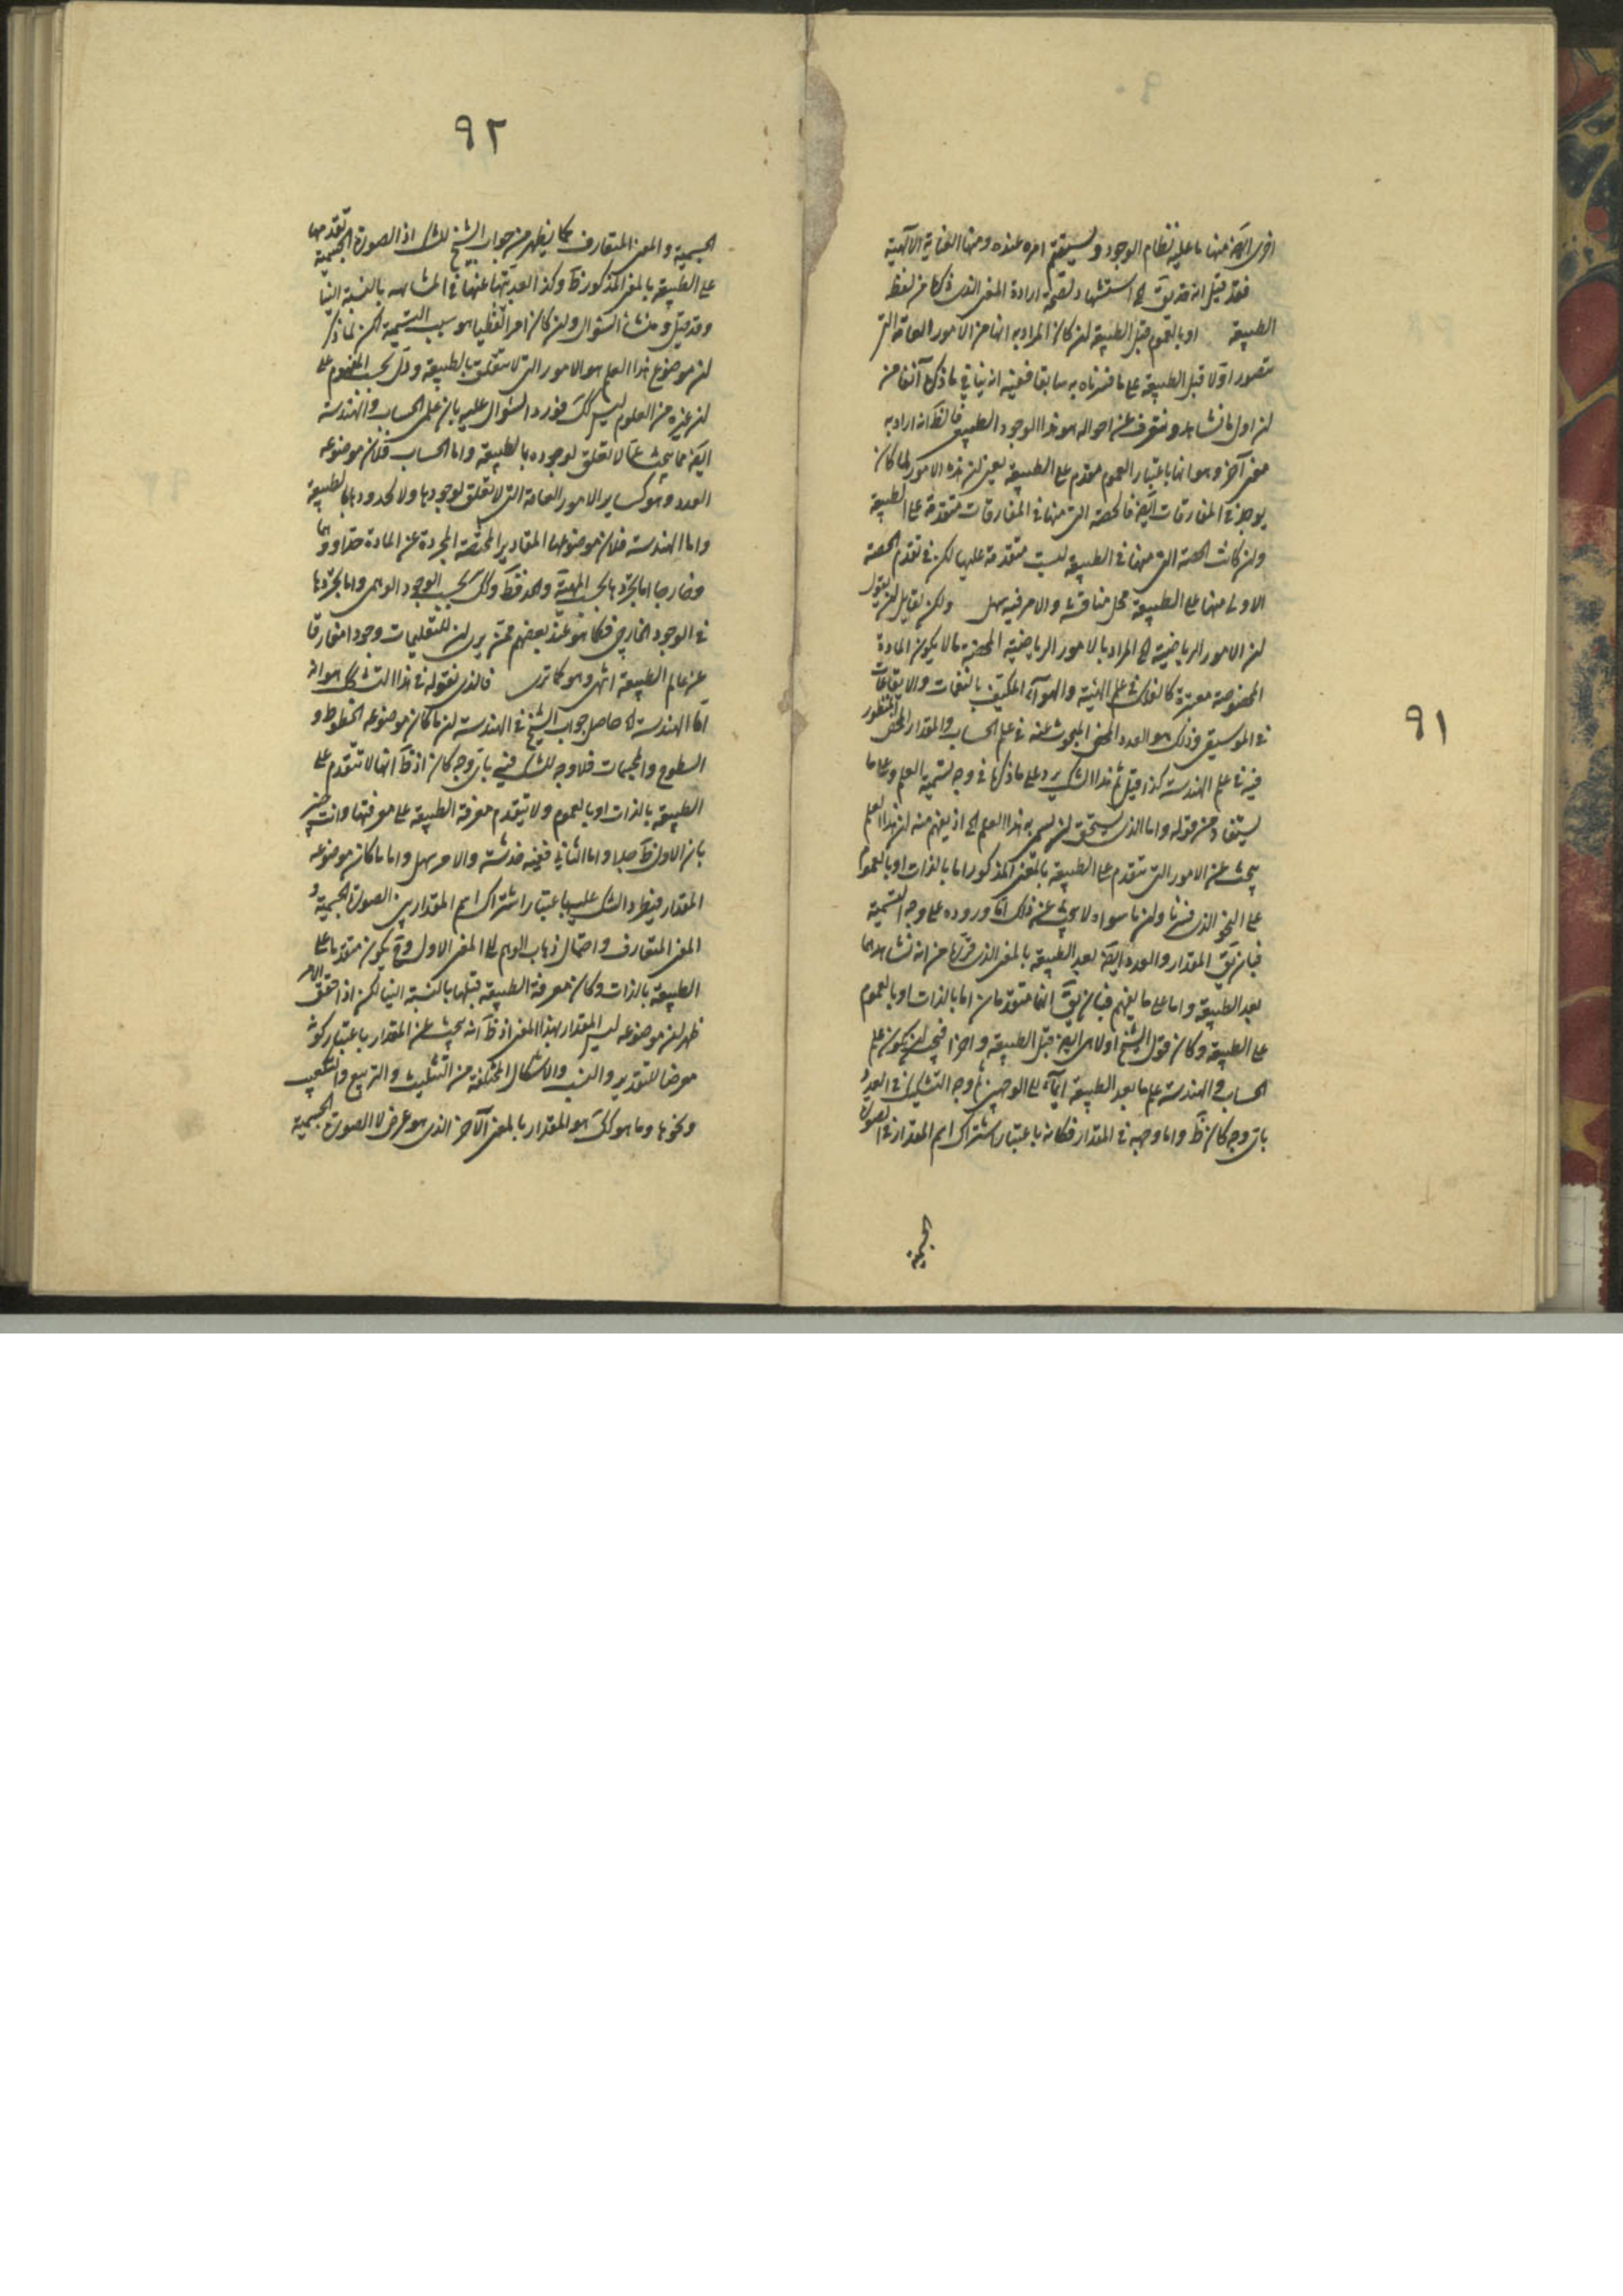 ٩١
اخرى الهية منها ما عليه نظام الوجود ويستقيم امره عنده ومنها العناية الالهية
فقد قيل انه قد يق الخ استشهاد لصحة ارادة المعنى الذى ذكرنا من لفظ
الطبيعة او بالعموم قبل الطبيعة لمن كان المراد به انها من الامور العامة التى
تتصور اولا قبل الطبيعة على ما فسرناه به سابقا ففيه انه ينافى ما ذكره آنفا من
ان اول ما نشاهد ونتعرف عنه احواله هو هذا الوجود الطبيعى فالظ انه اراد به
معنى آخر وهو انها باعتبار العموم متقدم على الطبيعة يعنى ان هذه الامور لما كان
يوجد فى المفارقات ايض فالحصة التى منها فى المفارقات متقدمة على الطبيعة
وان كانت الحصة التى منها فى الطبيعة ليست متقدمة عليها لكن فى تقدم الحصة
الاولى منها على الطبيعة محل مناقشة والامر فيه سهل ولكن لقايل ان يقول
ان الامور الرياضية الخ المراد بالامور الرياضية المحضة ما لا يكون المادة
المخصوصة معتبرة كالفلك فى علم الهيئة والهوآء المكيف بالنغمات والايقاعات
فى الموسيقى وذلك هو العدد المحض المبحوث عنه فى علم الحساب والمقدار المحض المنظور
فيه فى علم الهندسة كذا قيل ثم هذا الشك يرد على ما ذكرنا فى وجه تسمية العلم وعلى ما
يستفاد من قوله واما الذى يستحق ان يسمى به هذا العلم الخ اذ يفهم منه ان هذا العلم
يبحث عن الامور التى تتقدم على الطبيعة بالمعنى المذكور اما بالذات او بالعموم
على النحو الذى فسرنا وان ما سواه لا يبحث عن ذلك اما وروده على وجه التسمية
فبان يق المقدار والعدد ايض بعد الطبيعة بالمعنى الذى قررنا من انه نشاهدهما
بعد الطبيعة واما على ما يفهم فبان يق انهما متقدمان اما بالذات او بالعموم
على الطبيعة وكان قول الشيخ اولا هى ايض قبل الطبيعة واخرا فيجب ان يكون علم
الحساب والهندسة علم ما بعد الطبيعة ايمآء الى الوجهين ثم وجه التشكيك فى العدد
باى وجه كان ظ واما وجهه فى المقدار فكانه باعتبار اشتراك اسم المقدار فى الصورة
الجسمية
٩٢
الجسمية والمعنى المتعارف كما يظهر من جواب الشيخ للشك اذ الصورة الجسمية تقدمها
على الطبيعة بالمعنى المذكور ظ وكذا بعديتها عنها فى المشاهدة بالنسبة الينا
وقد قيل ومنشأ السؤال وان كان امرا لفظيا هو سبب التسمية لكن لما ذكر
ان موضوع هذا العلم هو الامور التى لا تتعلق بالطبيعة ودل بحسب المفهوم على
ان غيره من العلوم ليس كك فورد السؤال عليه بان علمى الحساب والهندسة
ايض مما يبحث عما لا تعلق لوجوده بالطبيعة واما الحساب فلان موضوعه
العدد وهو كساير الامور العامة التى لا تعلق لوجودها ولا لحدودها بالطبيعة
واما الهندسة فلان موضوعها المقادير المحضة المجردة عن المادة حدا ووهما
وخارجا اما تجردها بحسب المهية والحد فظ وكك بحسب الوجود الوهمى واما تجردها
فى الوجود الخارجى فكما هو عند بعضهم ممن يرى ان للتعليميات وجودا مفارقا
عن عالم الطبيعة انتهى وهو كما ترى فالذى نقوله فى هذا التشكك هو انه
اما الهندسة الخ حاصل جواب الشيخ فى الهندسة ان ما كان موضوعه الخطوط و
السطوح والمجسمات فلا وجه للشك فيه باى وجه كان اذ ظ انها لا تتقدم على
الطبيعة بالذات او بالعموم ولا يتقدم معرفة الطبيعة على معرفتها وانت خبير
بان الاول ظ جدا واما الثانى ففيه خدشة والامر سهل واما ما كان موضوعه
المقدار فيطرد الشك عليه باعتبار اشتراك اسم المقدار بين الصورة الجسمية و
المعنى المتعارف واحتمال ذهاب الوهم الى المعنى الاول وح يكون متقدما على
الطبيعة بالذات وكان معرفة الطبيعة قبلها بالنسبة الينا لكن اذا حقق الامر
ظهر ان موضوعه ليس المقدار بهذا المعنى اذ ظ انه يبحث عن المقدار باعتبار كونه
معرضا للتقدير والنسب والاشكال المختلفة من التثليث والتربيع والتكعيب
ونحوها وما هو كك هو المقدار بالمعنى الآخر الذى هو عرض لا الصورة الجسمية